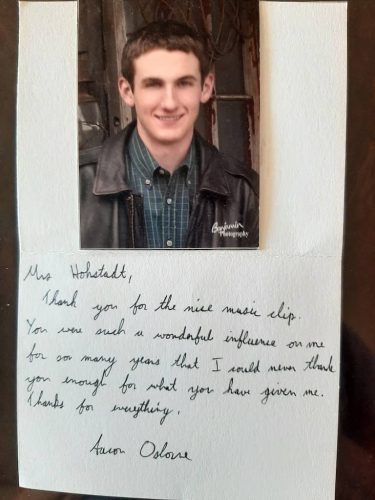 Benjamin
Photography
Mrs Hohstadt,
Thank you for the nice music clip.
You were such a wonderful influence on me
for so many years that I could never thank
you enough for what you have given me.
Thanks for everything.
Aaron Osborne